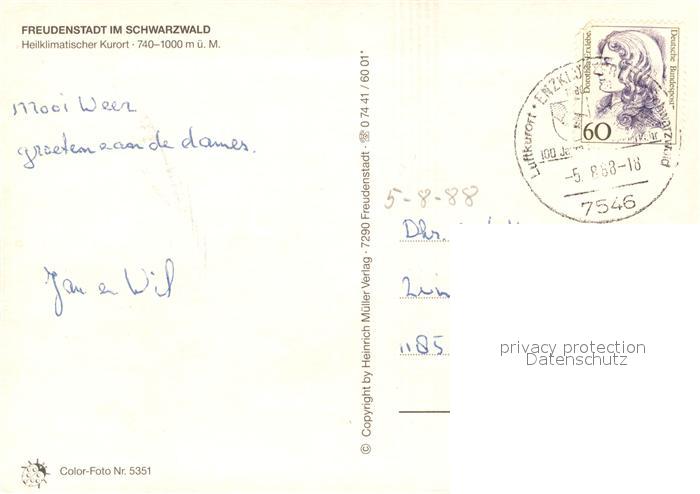 FREUDENSTADT IM SCHWARZWALD
Heilklimatischer Kurort · 740–1000 m ü. M.
Mooi Weer
groeten aan de dames.
Jan en Wil
Color-Foto Nr. 5351
© Copyright by Heinrich Müller Verlag · 7290 Freudenstadt · ☎ 0 74 41 / 60 01*
Deutsche Bundespost
60
Luftkurort · ENZKLÖ
Schwarzwald
100 Ja
-5. 8.88-18
7546
5-8-88
Dhr.
1185
privacy protection
Datenschutz